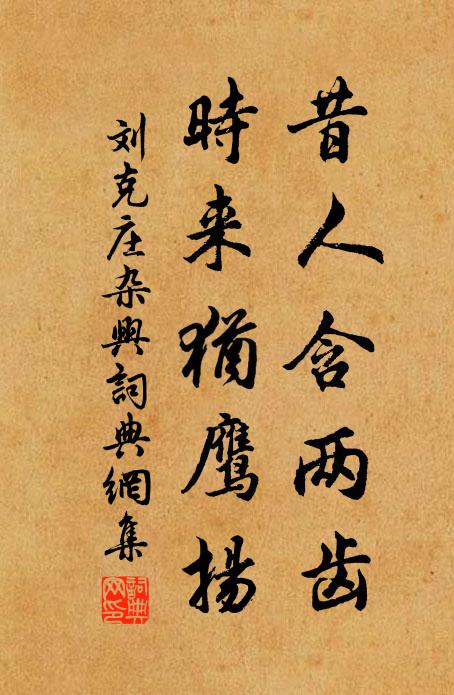 昔人含两齿
時来猶鹰揚
刘克庄杂興詞典網集
詞典网印